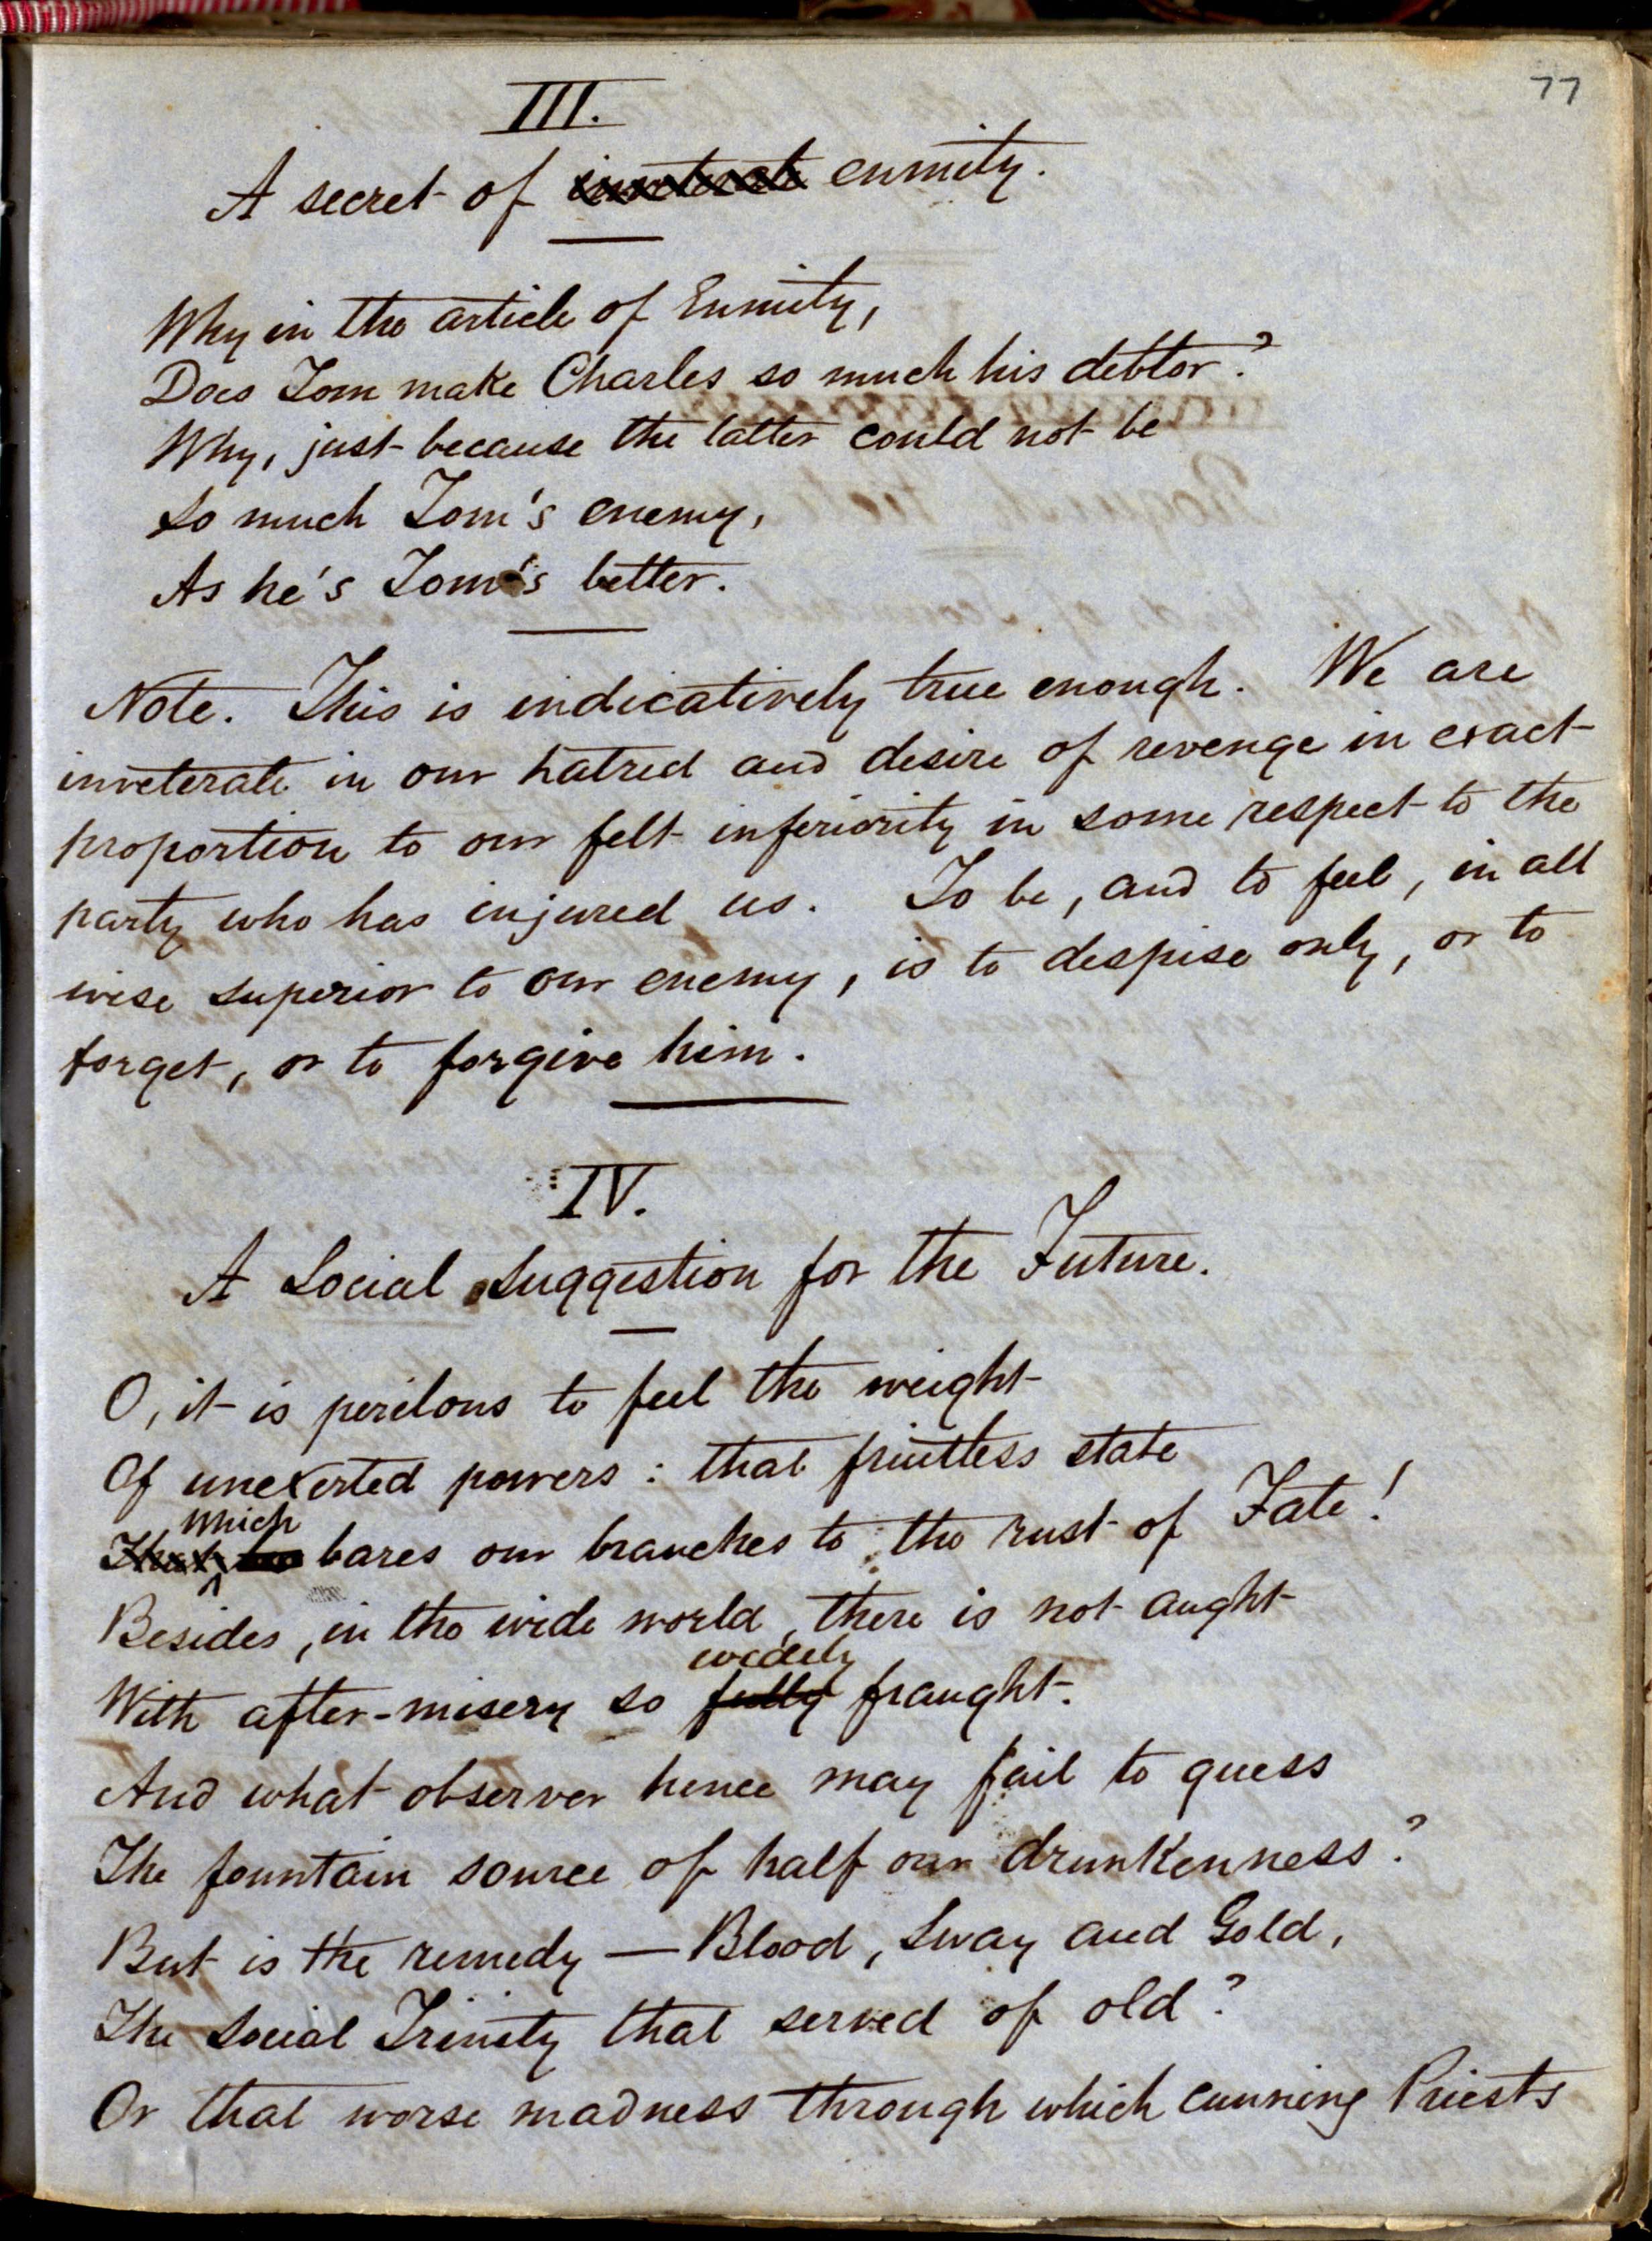 77
III.
A secret of inveterate enmity.
Why in the article of Enmity,
Does Tom make Charles so much his debtor?
Why, just because the latter could not be
So much Tom's enemy,
As he's Tom's better.
Note. This is indicatively true enough. We are
inveterate in our hatred and desire of revenge in exact
proportion to our felt inferiority in some respect to the
party who has injured us. To be, and to feel, in all
wise superior to our enemy, is to despise only, or to
forget, or to forgive him.
IV.
A Social Suggestion for the Future.
O, it is perilous to feel the weight
Of unexerted powers: that fruitless state
which
That bares our branches to the rust of Fate!
Besides, in the wide world, there is not aught
widely
With after-misery so fully fraught.
And what observer hence may fail to guess
The fountain source of half our drunkenness?
But is the remedy — Blood, Sway and Gold,
The Social Trinity that served of old?
Or that worse madness through which cunning Priests